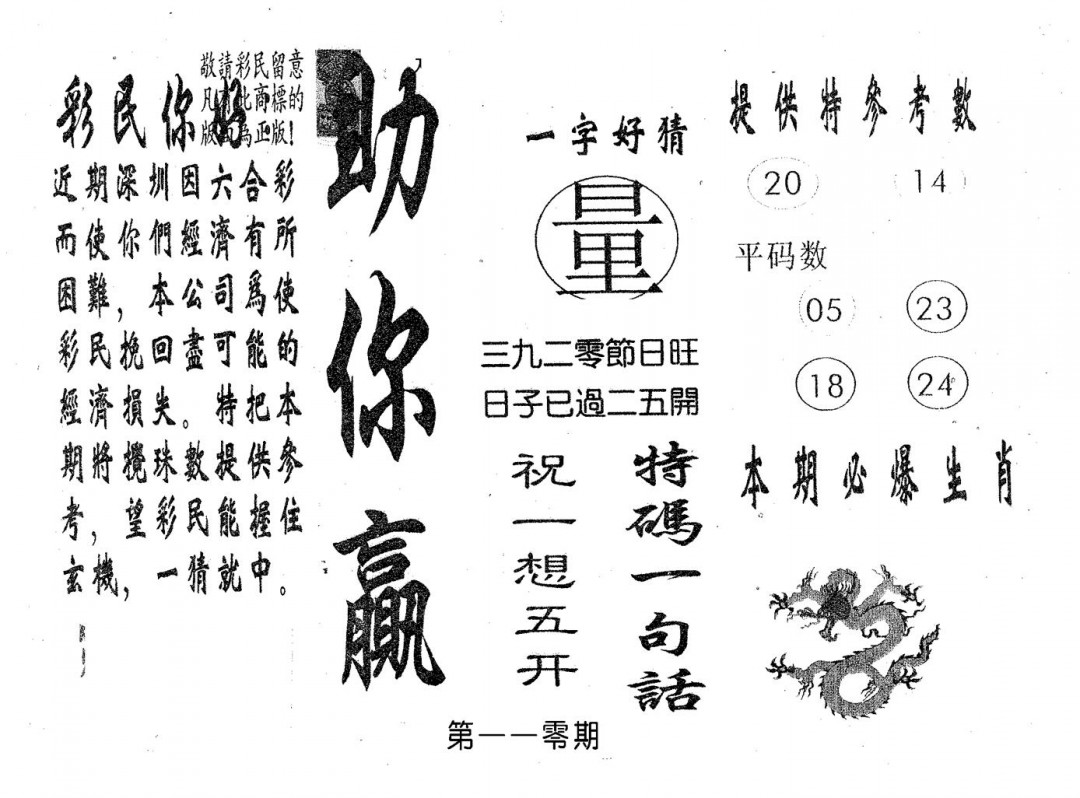 敬請彩民留意
凡 此商標的
版 為正版！
彩民你好
近期深圳因六合彩
而使你們經濟有所
困難，本公司為使
彩民挽回盡可能的
經濟損失。特把本
期將攪珠數提供參
考，望彩民能握住
玄機，一猜就中。
助你贏
一字好猜
量
三九二零節日旺
日子已過二五開
特碼一句話
祝一想五开
提供特參考數
20 14
平码数
05 23
18 24
本期必爆生肖
第一一零期